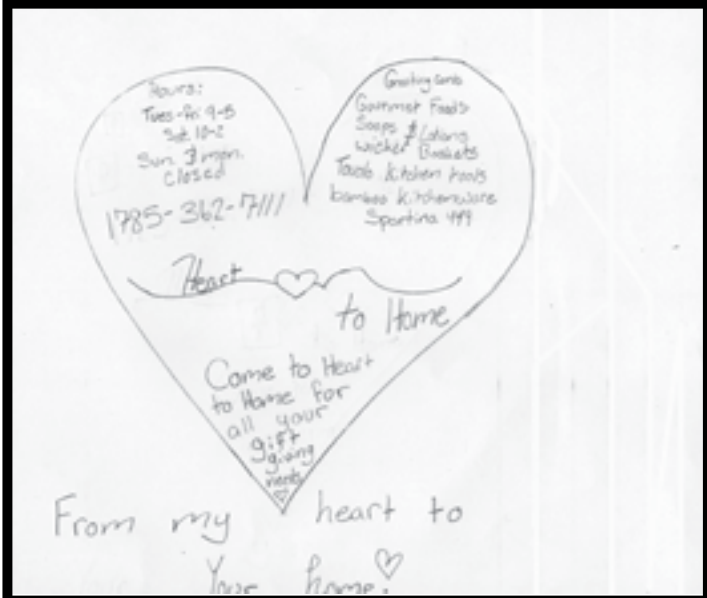 Hours:
Tues-Fri 9-5
Sat. 10-2
Sun. & mon.
Closed
1785-362-7111
Greeting cards
Gourmet Foods
Soaps & Lotions
wicker Baskets
kitchen tools
bamboo kitchenware
Heart
to Home
Come to Heart
to Home for
all your
gift
giving
needs
From my heart to
Your home!